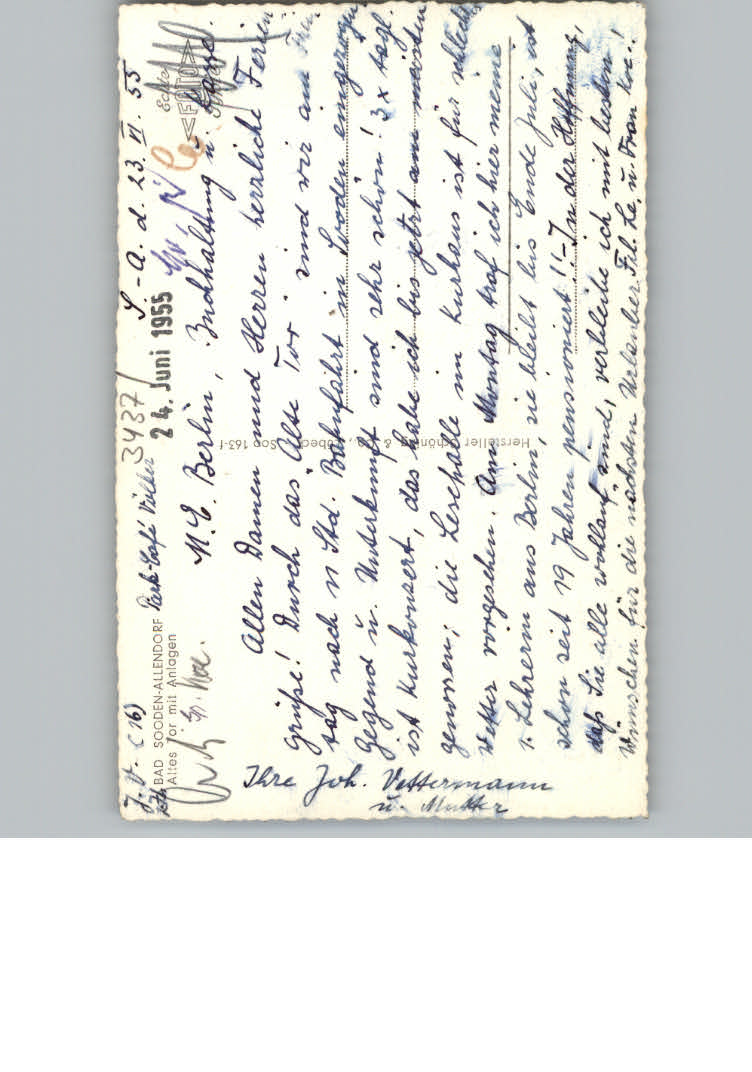 J. V. C 16)
S.-A. d. 23. VI. 55
BAD SOODEN-ALLENDORF Park-Café
Altes Tor mit Anlagen
3437/
24. Juni 1955
Echte
FOTO
N. E. Berlin, Buchhaltung u.
Allen Damen und Herren herzliche Ferien
grüße! Durch das "Alte Tor" sind wir am
tag nach 11 Std. Bahnfahrt in Sooden eingezogen
Gegend u. Unterkunft sind sehr schön! 3x tägl.
ist Kurkonzert, das habe ich bis jetzt am meisten
genossen; die Lesehalle im Kurhaus ist für
Wetter vorgesehen. Am Montag traf ich hier meine
1. Lehrerin aus Berlin, sie bleibt bis Ende Juli, ist
schon seit 19 Jahren pensioniert!! - In der Hoffnung,
daß Sie alle wohlauf sind, verbleibe ich mit besten
Wünschen für die nächsten Urlauber Frl. Le. u. Frau Kre.!
Ihre Joh. Vettermann
u. Mutter
Hersteller Schöning & Co., Lübeck
Soo 163-f